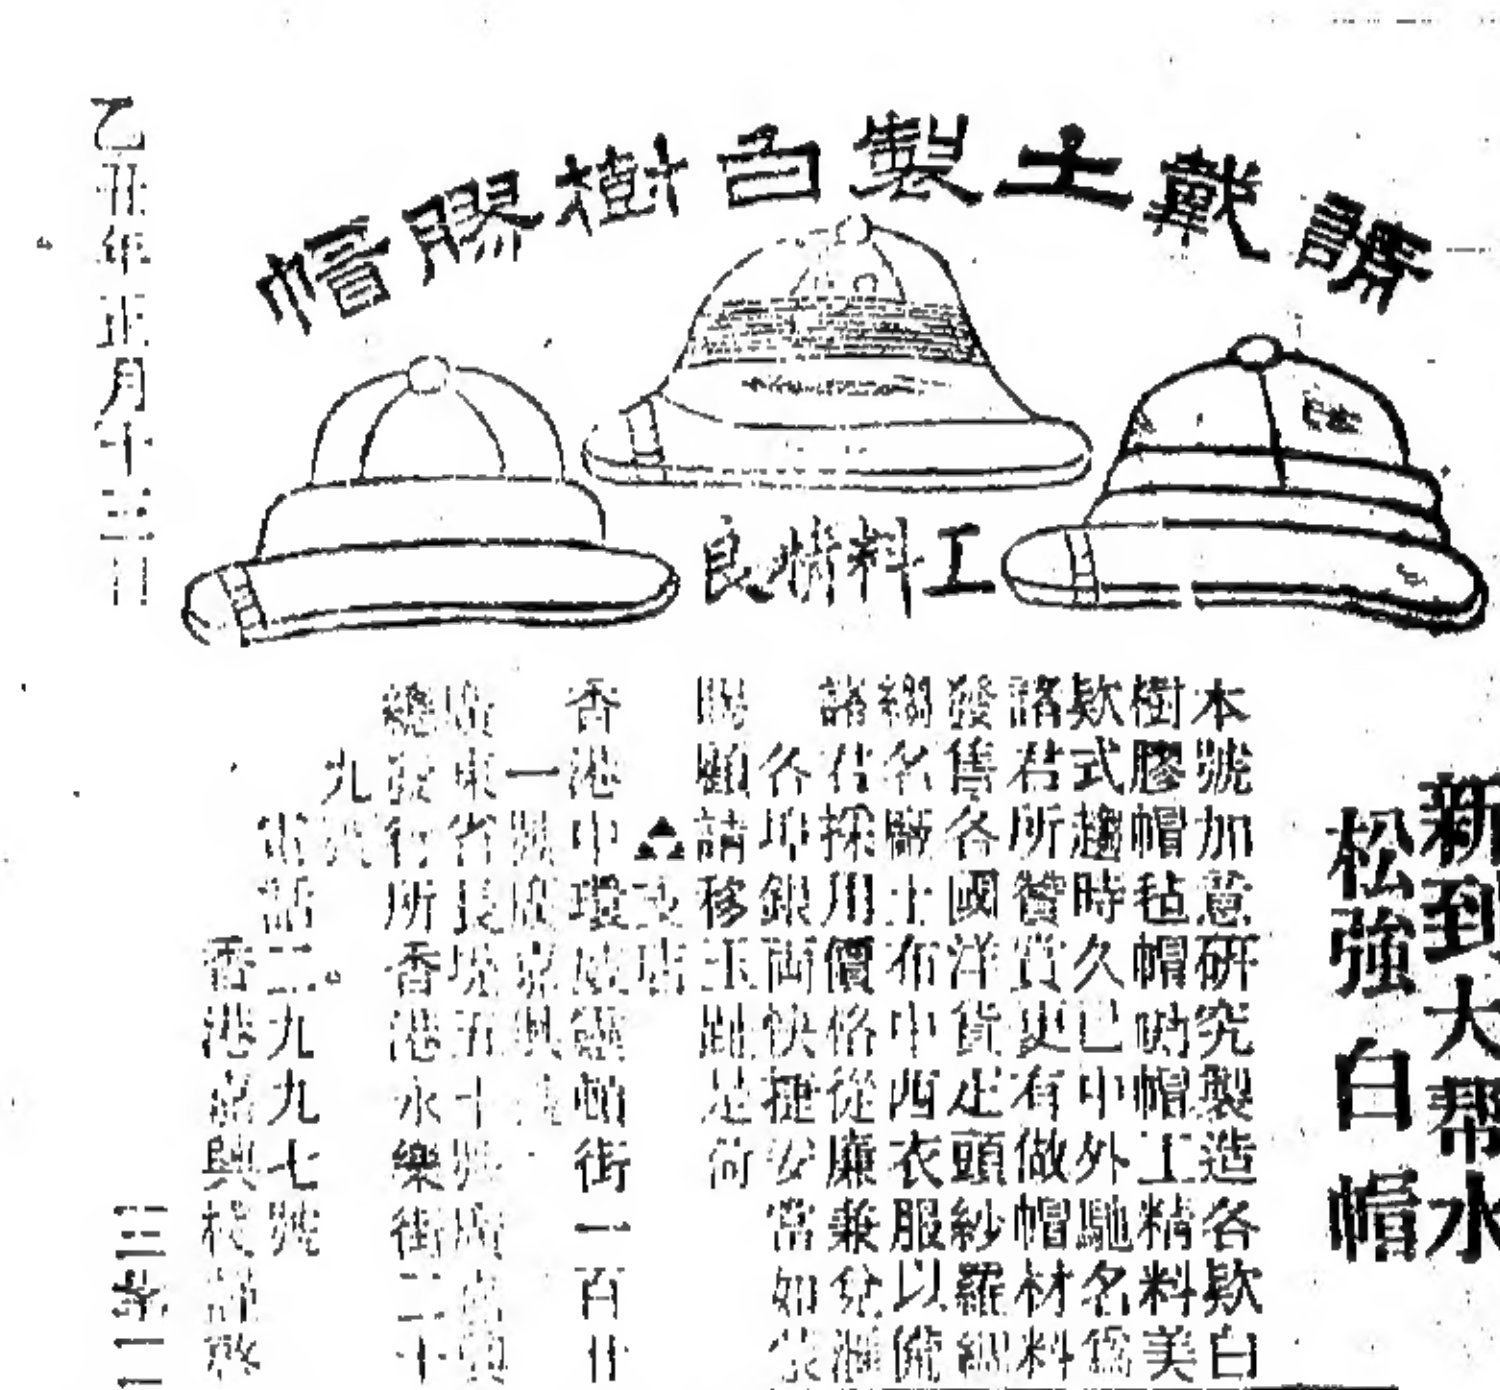 請戴土製白樹膠帽
工料精良
新到大帮水
松強白帽
本號加意研究製造各欵白
樹膠帽毡帽呞帽工精料美
欵式趨時久已中外馳名爲
諸君所賛賞更有做帽材料
發售各國洋貨疋頭紗羅綢
縐名廠土布中西衣服以備
諸君採用價格從廉兼兌滙
各埠銀両快捷妥當如蒙
賜顧請移玉趾是荷
支店
香港中環威靈頓街一百廿
一號
廣東省長堤五十號
總發行所香港永樂街二十
九號
電話二九九七號
香港
乙丑年正月十三日